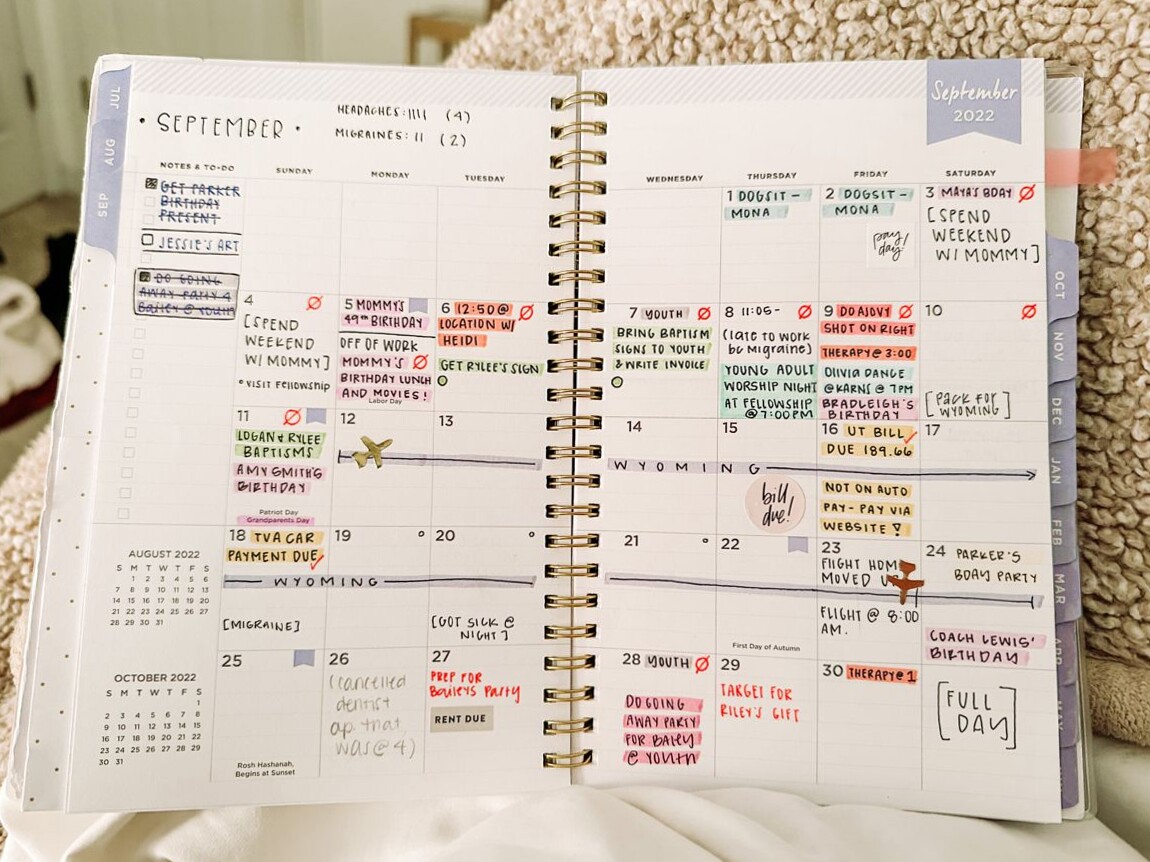 JUL
AUG
SEP
• SEPTEMBER •
HEADACHES: IIII (4)
MIGRAINES: II (2)
September
2022
NOTES & TO-DO
SUNDAY
MONDAY
TUESDAY
WEDNESDAY
THURSDAY
FRIDAY
SATURDAY
GET PARKER
BIRTHDAY
PRESENT
JESSIE'S ART
DO GOING
AWAY PARTY 4
Bailey @ YOUTH
1 DOGSIT -
MONA
2 DOGSIT -
MONA
pay
day!
3 MAYA'S BDAY
[SPEND
WEEKEND
W/ MOMMY]
4
[SPEND
WEEKEND
W/ MOMMY]
° VISIT FELLOWSHIP
5 MOMMY'S
49TH BIRTHDAY
OFF OF WORK
MOMMY'S
BIRTHDAY LUNCH
AND MOVIES!
Labor Day
6 12:50 @
LOCATION W/
HEIDI
GET RYLEE'S SIGN
7 YOUTH
BRING BAPTISM
SIGNS TO YOUTH
& WRITE INVOICE
8 11:05-
(late to work
bc migraine)
YOUNG ADULT
WORSHIP NIGHT
AT FELLOWSHIP
@ 7:00PM
9 DO AJOVY
SHOT ON RIGHT
THERAPY @ 3:00
OLIVIA DANCE
@ KARNS @ 7PM
BRADLEIGH'S
BIRTHDAY
10
[PACK FOR
WYOMING]
11
LOGAN & RYLEE
BAPTISMS
AMY SMITH'S
BIRTHDAY
Patriot Day
Grandparents Day
12
13
14
15
WYOMING
bill
due!
16 UT BILL
DUE 189.66
NOT ON AUTO
PAY - PAY VIA
WEBSITE!
17
18 TVA CAR
PAYMENT DUE
WYOMING
[MIGRAINE]
19
20
[GOT SICK @
NIGHT]
21
22
First Day of Autumn
23
FLIGHT HOME
MOVED
FLIGHT @ 8:00
AM.
24 PARKER'S
BDAY PARTY
COACH LEWIS'
BIRTHDAY
25
Rosh Hashanah,
Begins at Sunset
26
(cancelled
dentist
ap. that
was @ 4)
27
PREP FOR
Baileys Party
RENT DUE
28 YOUTH
DO GOING
AWAY PARTY
FOR BAILEY
@ YOUTH
29
TARGET FOR
RILEY'S GIFT
30 THERAPY @ 1
[FULL
DAY]
AUGUST 2022
S M T W T F S
1 2 3 4 5 6
7 8 9 10 11 12 13
14 15 16 17 18 19 20
21 22 23 24 25 26 27
28 29 30 31
OCTOBER 2022
S M T W T F S
1
2 3 4 5 6 7 8
9 10 11 12 13 14 15
16 17 18 19 20 21 22
23 24 25 26 27 28 29
30 31
OCT
NOV
DEC
JAN
FEB
MAR